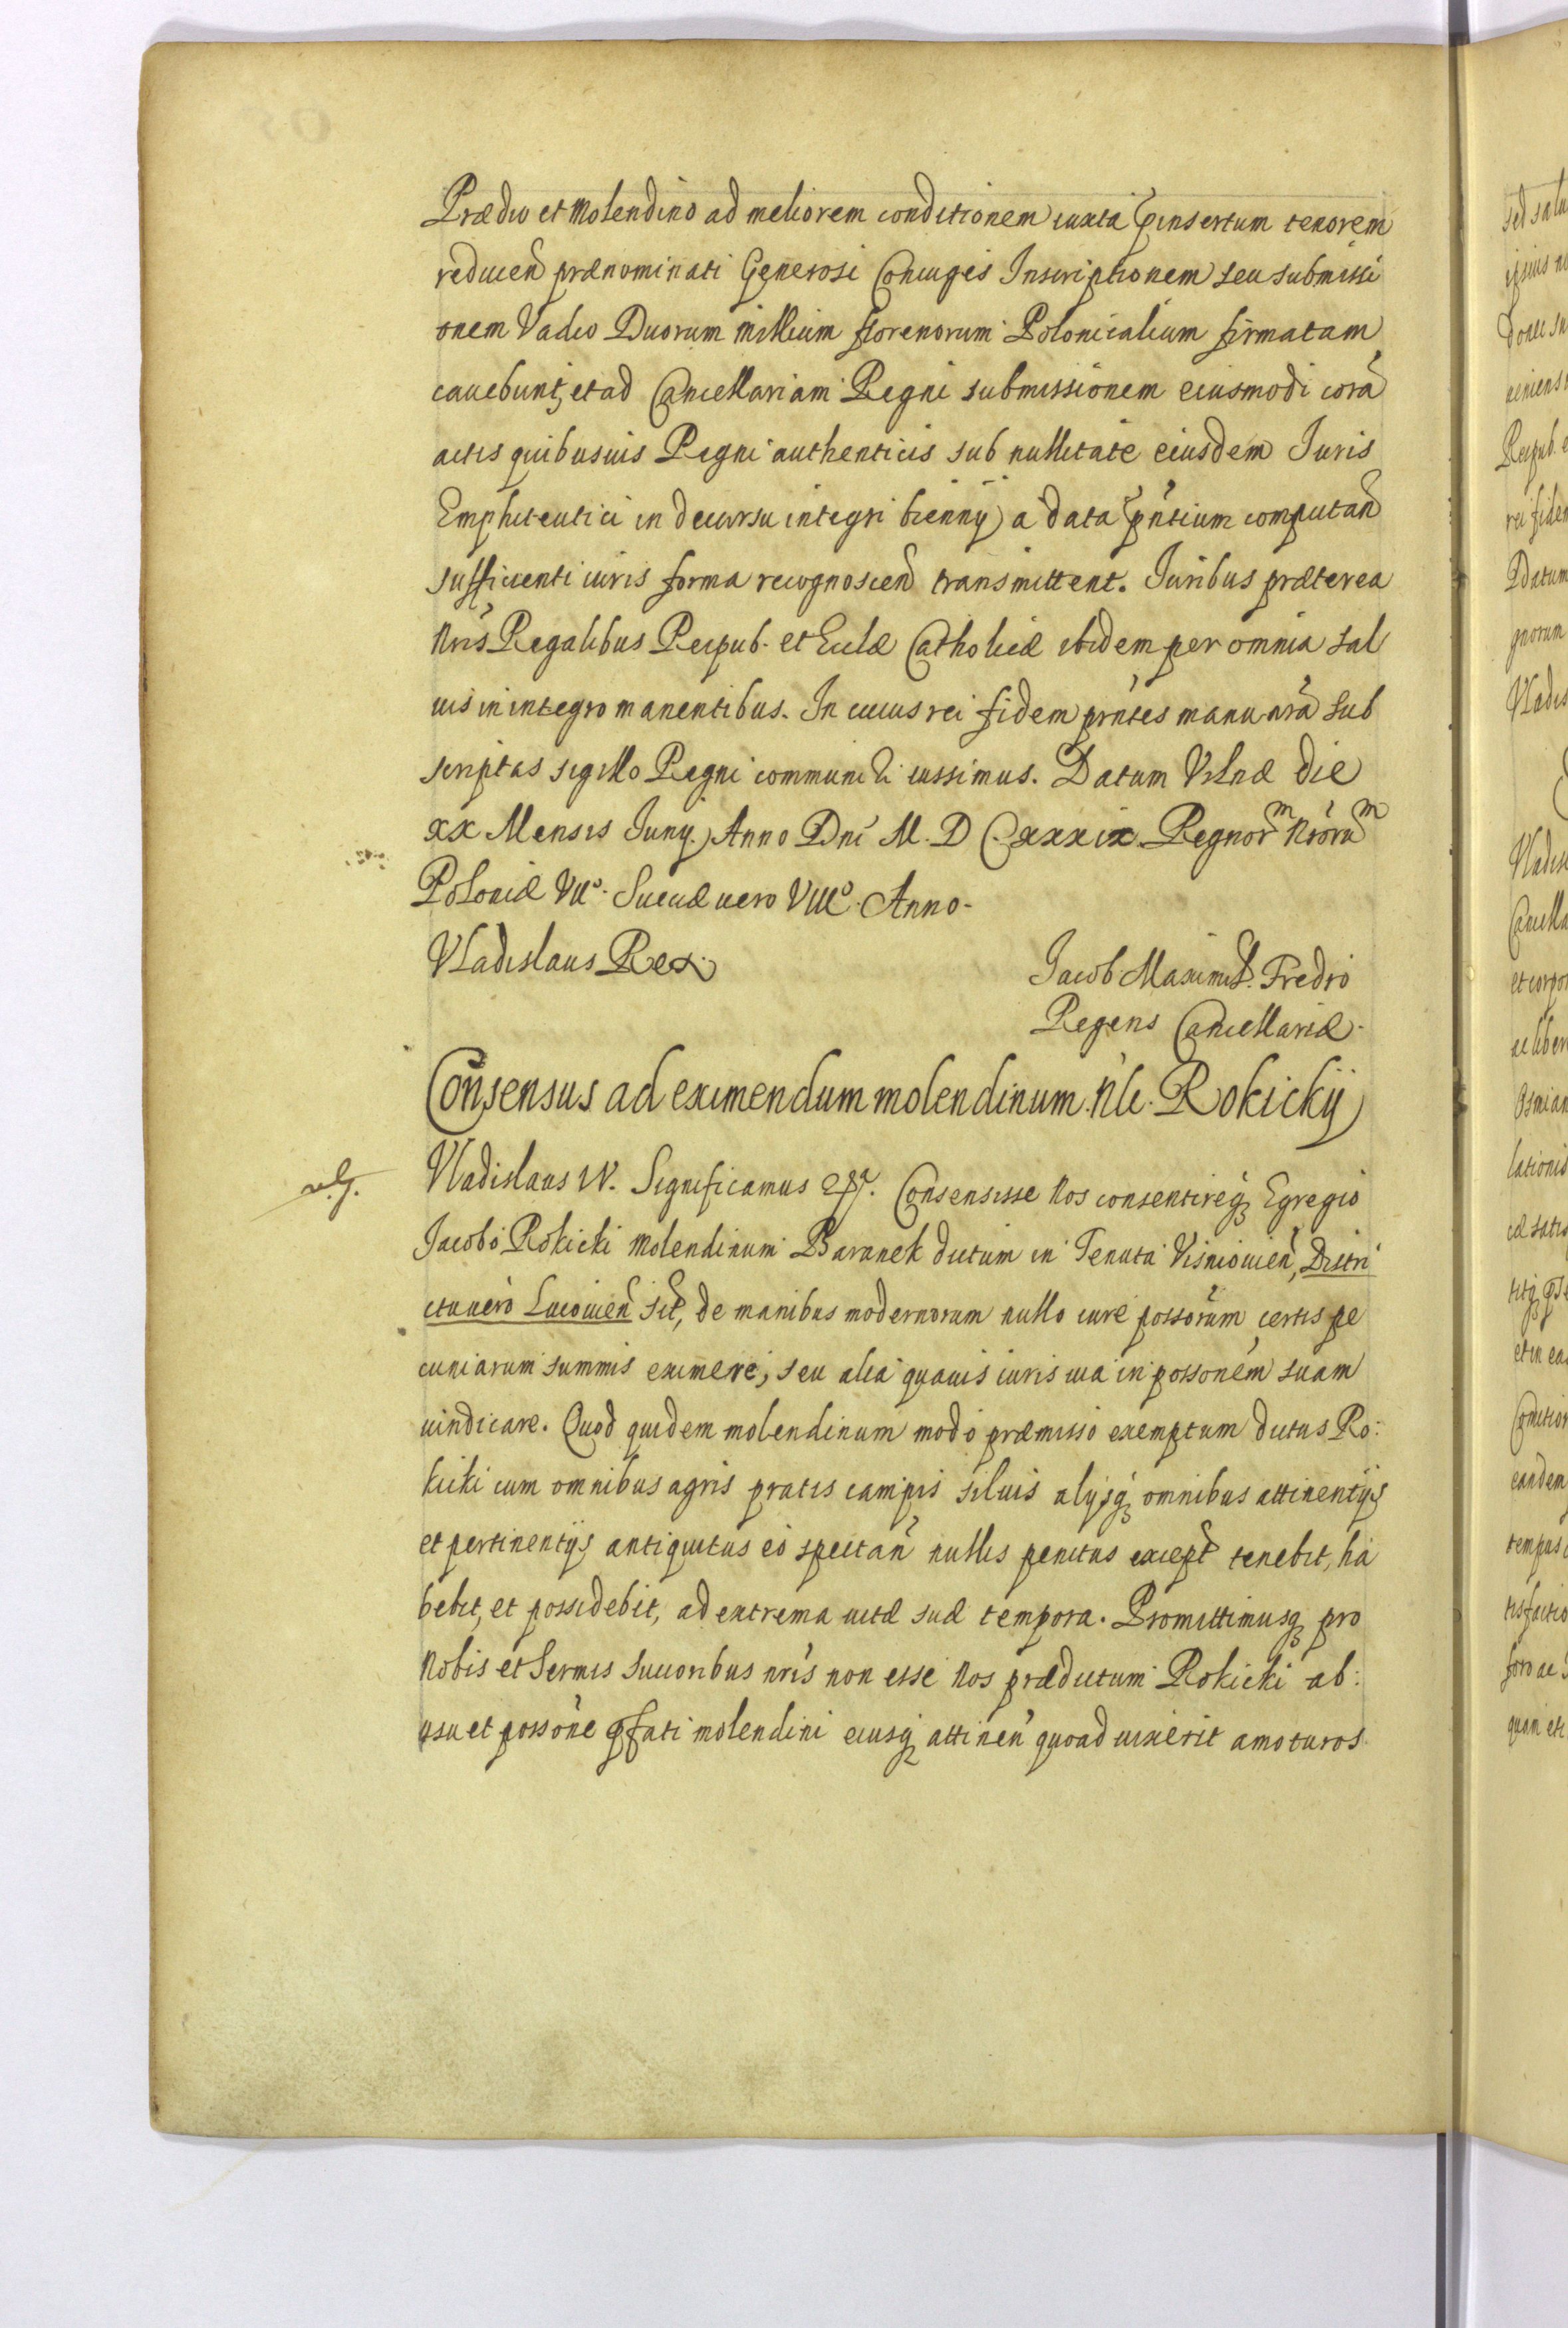 Prædio et Molendino ad meliorem conditionem iuxta pinsertum tenorem
reducen̄ prænominati Generosi Coniuges Inscriptionem seu submissi
onem Vadio Duorum Millium florenorum Polonicalium firmatam
cauebunt, et ad Cancellariam Regni submissionem eiusmodi corā
actis quibusuis Regni authenticis sub nullitate eiusdem Iuris
Emphiteutici in decursu integri bienny a data pn̄tium computan̄
sufficienti iuris forma recognoscen̄ transmittent. Iuribus præterea
Nr̄is Regalibus Reipub. et Eccl̄æ Catholicæ ibidem per omnia sal
uis in integro manentibus. In cuius rei fidem prn̄tes manu nr̄a sub
scriptas sigillo Regni communi͠ri iussimus. Datum Vilnæ die
xx Mensis Iuny. Anno Dn̄i M. D C. xxxix. Regnorᵐ Nr̄oruᵐ
Poloniæ VII°. Sueciæ uero VIII°. Anno.
Vladislaus Rex.
Jacob Maximil. Fredro
Regens Cancellariæ.
Consensus ad eximendum molendinum. Nli. Rokickÿ
Vladislaus IV. Significamus etc. Consensisse Nos consentireq; Egregio
Jacobo Rokicki Molendinum Baranek dictum in Tenuta Visniouien̄, Distri
ctu uero Lucouien̄ sit, de manibus modernorum nullo iure posso͠rum certis pe
cuniarum summis eximere, seu alia quauis iuris uia in posson̄em suam
uindicare. Quod quidem molendinum modo præmisso exemptum dictus Ro:
kicki cum omnibus agris pratis campis siluis alysq; omnibus attinentÿs
et pertinentÿs antiquitus eo spectan̄ nullis penitus except̄ tenebit, ha
bebit, et possidebit, ad extrema uitæ suæ tempora. Promittimusq; pro
Nobis et Sermis Succoribus nr̄is non esse Nos prædictum Rokicki ab:
usu et posson̄e p̄fati molendini eiusq; attinen̄ quoad uixerit amoturos